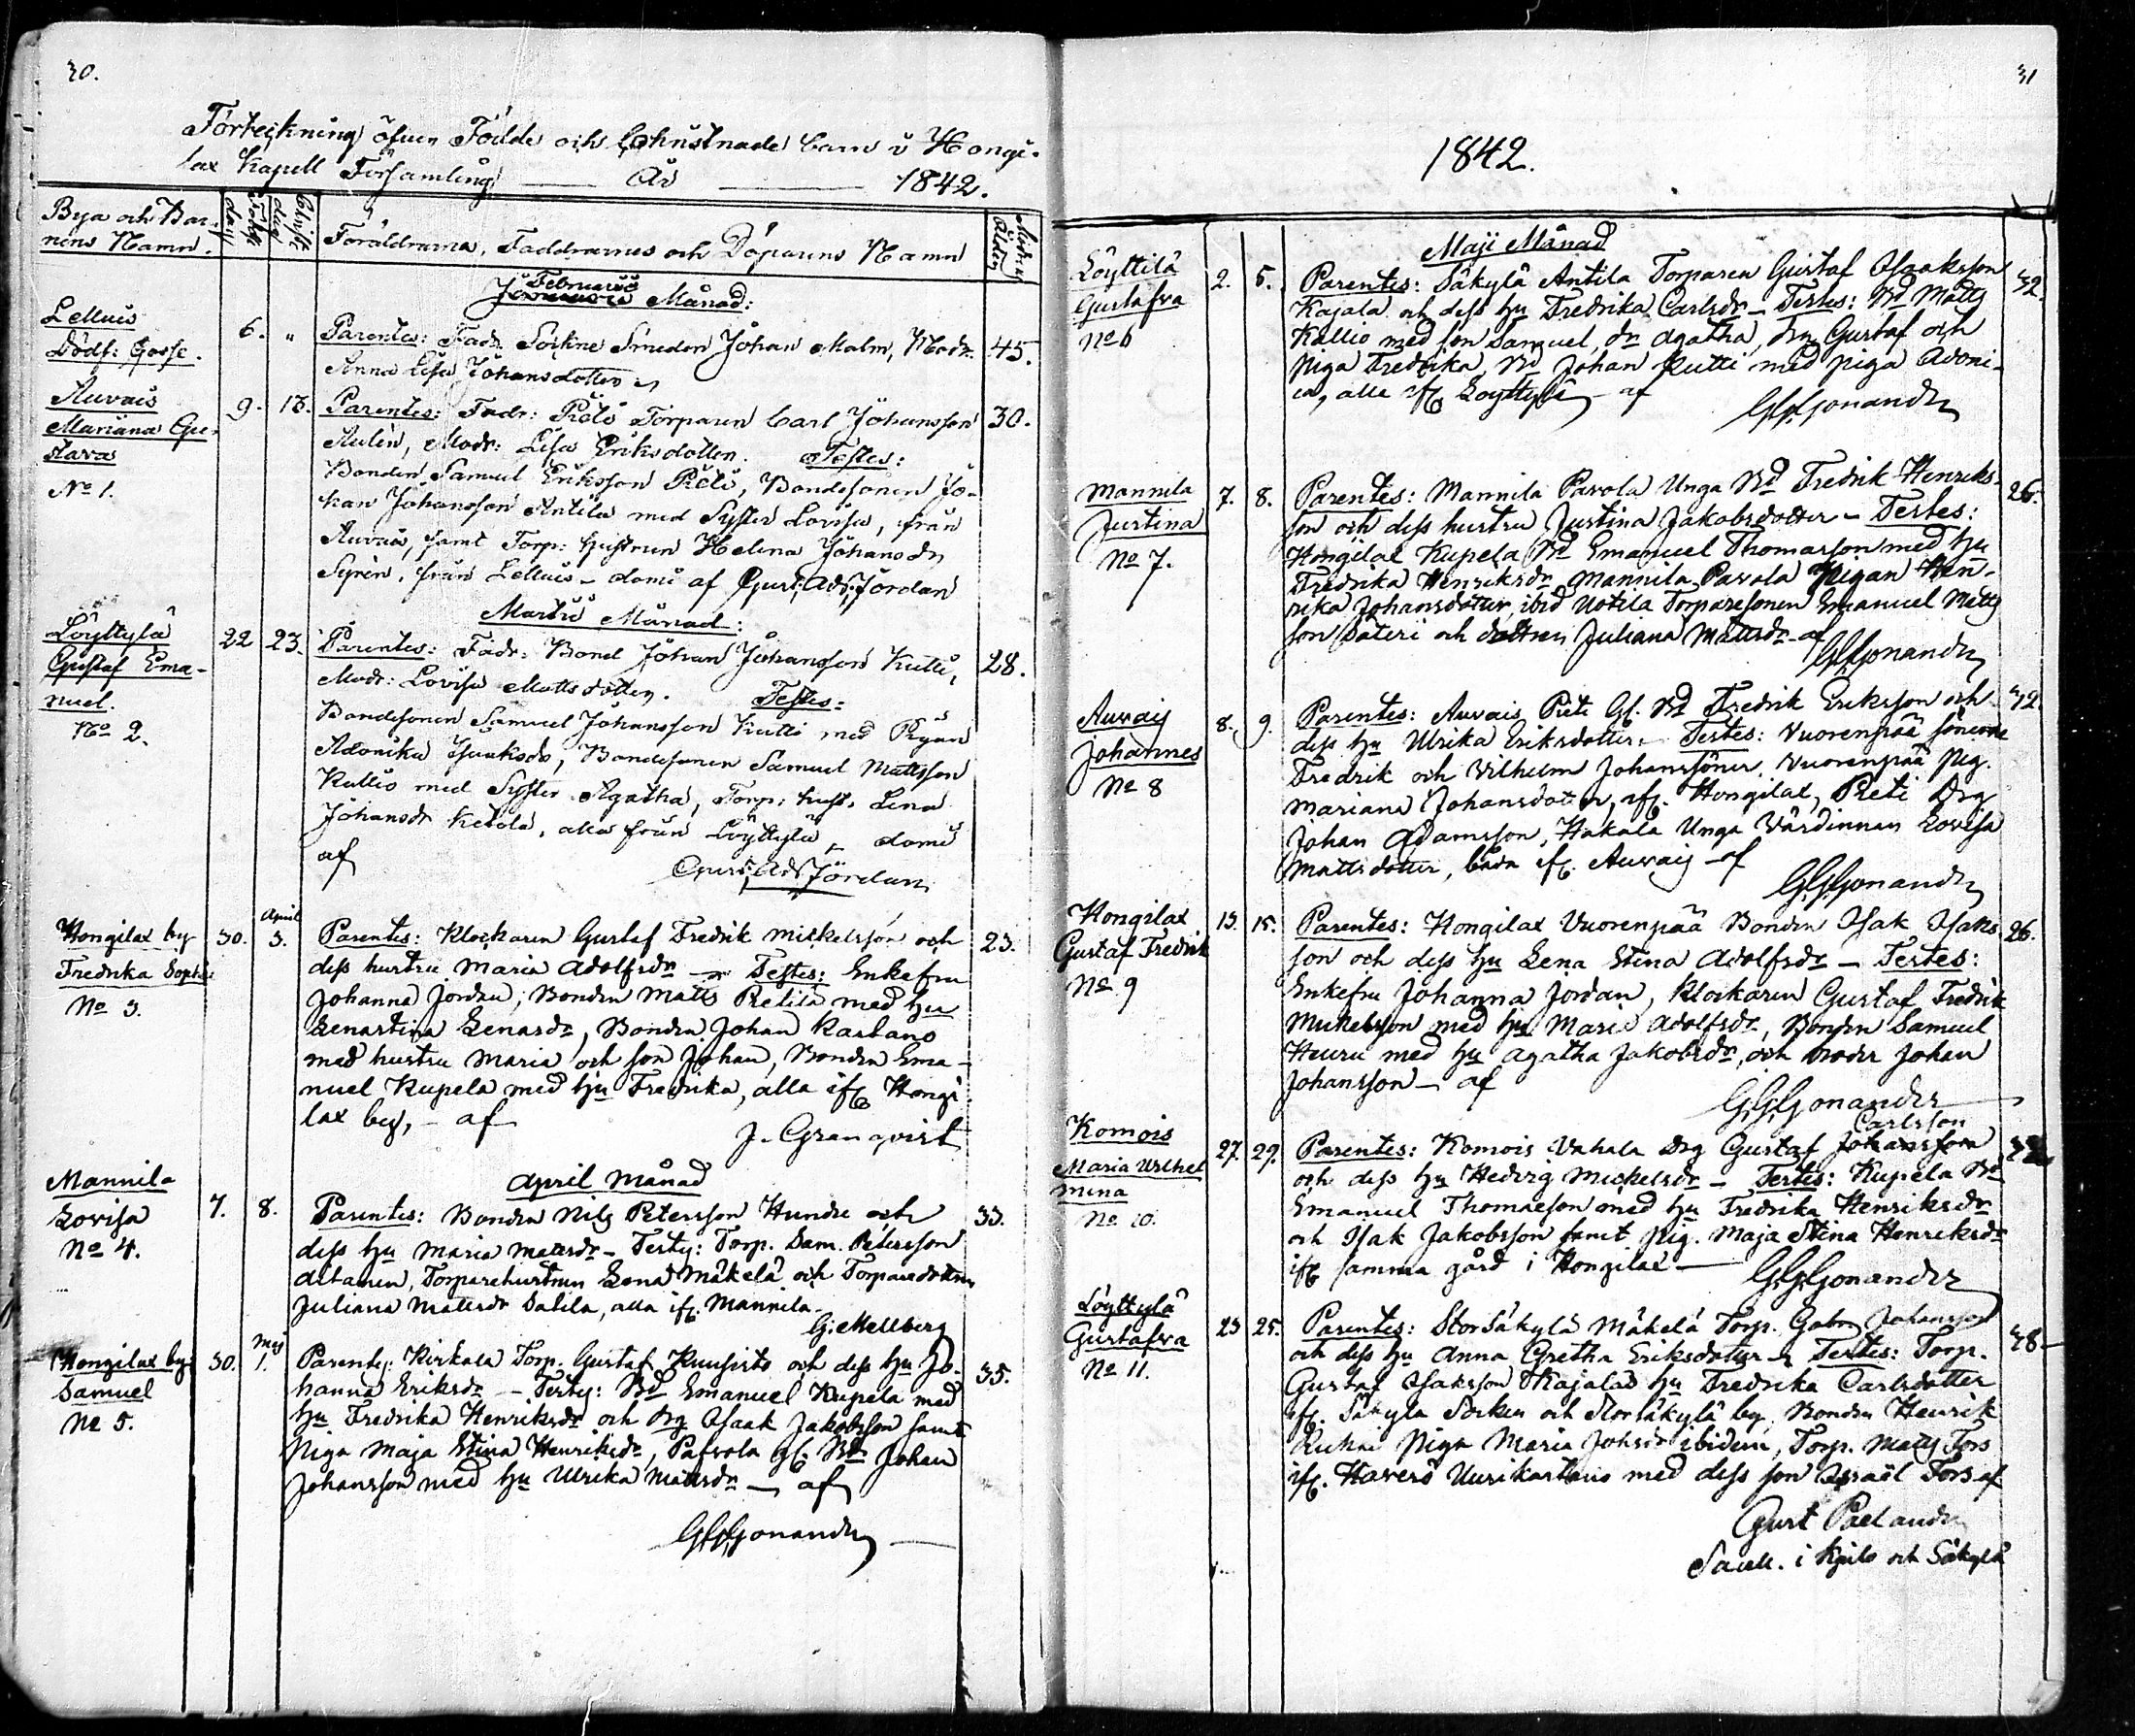 30.
Förteckning öfver Födde och Christnade barn i Hongi-
lax Kapell Församling År 1842.
Bya och Bar-
nens Namn.
Född
dag
Christ
dag
Föräldrarna, Faddrarnes och Döparens Namn
Modrens
ålder
Februarii
Månad:
Lellais
Dödf: Gosse.
6. "
Parentes: Fadr. Sockne Smeden Johan Malm, Modr.
Anna Lisa Johansdotter
45.
Auvais
Mariana Gu-
stava
No 1.
9. 13.
Parentes: Fadr: Torparen Carl Johansson
Aulin, Modr: Lisa Eriksdotter. Testes:
Bonden Samuel Eriksson, Bondesonen Jo-
han Johansson Antila med Syster Lovisa, från
Auvais, samt Torp: hustrun Helena Johansdr
Syrèn, från Lellais domi af Gust: Ad: Jordan
30.
Martii Månad:
Löyttylä
Gustaf Ema-
nuel.
No 2.
22 23.
Parentes: Fadr: Bond Johan Johansson Kutti,
Modr: Lovisa Mattsdotter. Testes:
Bondesonen Samuel Johansson Kutti med Pigan
Adonika Isaaksdr, Bondesonen Samuel Mattsson
Kallio med Syster Agatha, Torp: hust: Lena
Johansdr Ketola, alla från Löyttylä domi
af
Gust: Ad: Jordan
28.
Hongilax by
Fredrika Sophia
No 3.
30.
April
3.
Parentes: Klockaren Gustaf Fredrik Mickelsson och
dess hustru Maria Adolfsdr Testes: Enkefru
Johanna Jordan, Bonden Matts Pretilä med hu
Lenastina Lenasdr, Bonden Johan Kartano
med hustru Maria och son Johan, Bonden Ema-
nuel Kupela med hu Fredrika, alla if Hongi-
lax by, - af
J. Granqvist
23.
April Månad
Mannila
Lovisa
No 4.
7. 8.
Parentes: Bonden Nils Petersson Hundre och
dess hu Maria Matsdr - Testes: Torp. Sam. Petersson
, Torparehustrun Lena Mäkelä och Torparedottren
Juliana Mattsdr, alla if. Mannila.
G. Mellberg
33.
Hongilax by
Samuel
No 5.
30.
Maj
1.
Parentes: Kirkala Torp. Gustaf Kuusisto och dess hu Jo-
hanna Eriksdr - Testes: Bd Emanuel Kupela med
hu Fredrika Henriksdr och drg Isaak Jakobsson samt
Piga Maja Stina Henriksdr, Pafvola gl. Bd Johan
Johansson med hu Ulrika Mattsdr - af
G.G. Gonander
35.
31
1842.
Maji Månad
Löyttilä
Gustafva
No 6
2. 5.
Parentes: Säkylä Antila Torparen Gustaf Isaaksson
Kajala och dess hu Fredrika Carlsdr - Testes: Bd Matts
Kallio med son Samuel, dr Agatha, drg Gustaf och
Piga Fredrika, Bd Johan Kutti med piga Adoni-
ca, alla if Löyttylä - af
G.G. Gonander
42.
Mannila
Justina
No 7.
7. 8.
Parentes: Mannila Pavola Unga Bd Fredrik Henriks-
son och dess hustru Justina Jakobsdotter - Testes:
Hongilax Kupela Bd Emanuel Thomasson med hu
Fredrika Henriksdr Mannila Pavola Pigan Hen-
rika Johansdotter, ibid Uotila Torparesonen Emanuel Matts
son Säteri och dottren Juliana Mattsdr - af
G.G. Gonander
26.
Auvais
Johannes
No 8
8. 9.
Parentes: Auvais Preti Gl. Bd Fredrik Eriksson och
dess hu Ulrika Eriksdotter. - Testes: Vuorenpää sönerne
Fredrik och Vilhelm Johanssöner, Vuorenpää Pig.
Mariana Johansdotter, if. Hongilax, Preti Drg
Johan Adamsson, Hakala Unga Värdinnan Lovisa
Mattsdotter, båda if. Auvais - af
G.G. Gonander
42.
Hongilax
Gustaf Fredrik
No 9
13. 15.
Parentes: Hongilax Vuorenpää Bonden Isak Isaks-
son och dess hu Lena Stina Adolfsdr - Testes:
Enkefru Johanna Jordan, Klockaren Gustaf Fredrik
Mickelsson med hu Maria Adolfsdr, Bonden Samuel
Heuru med hu Agatha Jakobsdr, och broder Johan
Johansson - af
G.G. Gonander
26.
Komois
Maria Wilhel
mina
No 10.
27. 29.
Carlsson
Parentes: Komois Vahala Drg Gustaf Johansson
och dess hu Hedvig Mickelsdr - Testes: Kupela Bd
Emanuel Thomasson med hu Fredrika Henriksdr
och Isak Jakobsson samt Pig. Maja Stina Henriksdr
if samma gård i Hongilax -
G.G. Gonander
Löyttylä
Gustafva
No 11.
23 25.
Parentes: Storsäkylä Mäkelä Torp. Gabr. Johansson
och dess hu Anna Gretha Eriksdotter - Testes: Torp.
Gustaf Isaksson Kajalas hu Fredrika Carlsdotter
if. Säkylä Socken och Storsäkylä by, Bonden Henrik
Piga Maria Johsdr ibidem, Torp. Matts Fors
if. Haverö Uusikartano med dess son Israel Fors af
Gust Paelander
Sacell. i Kjulo och Säkylä
38